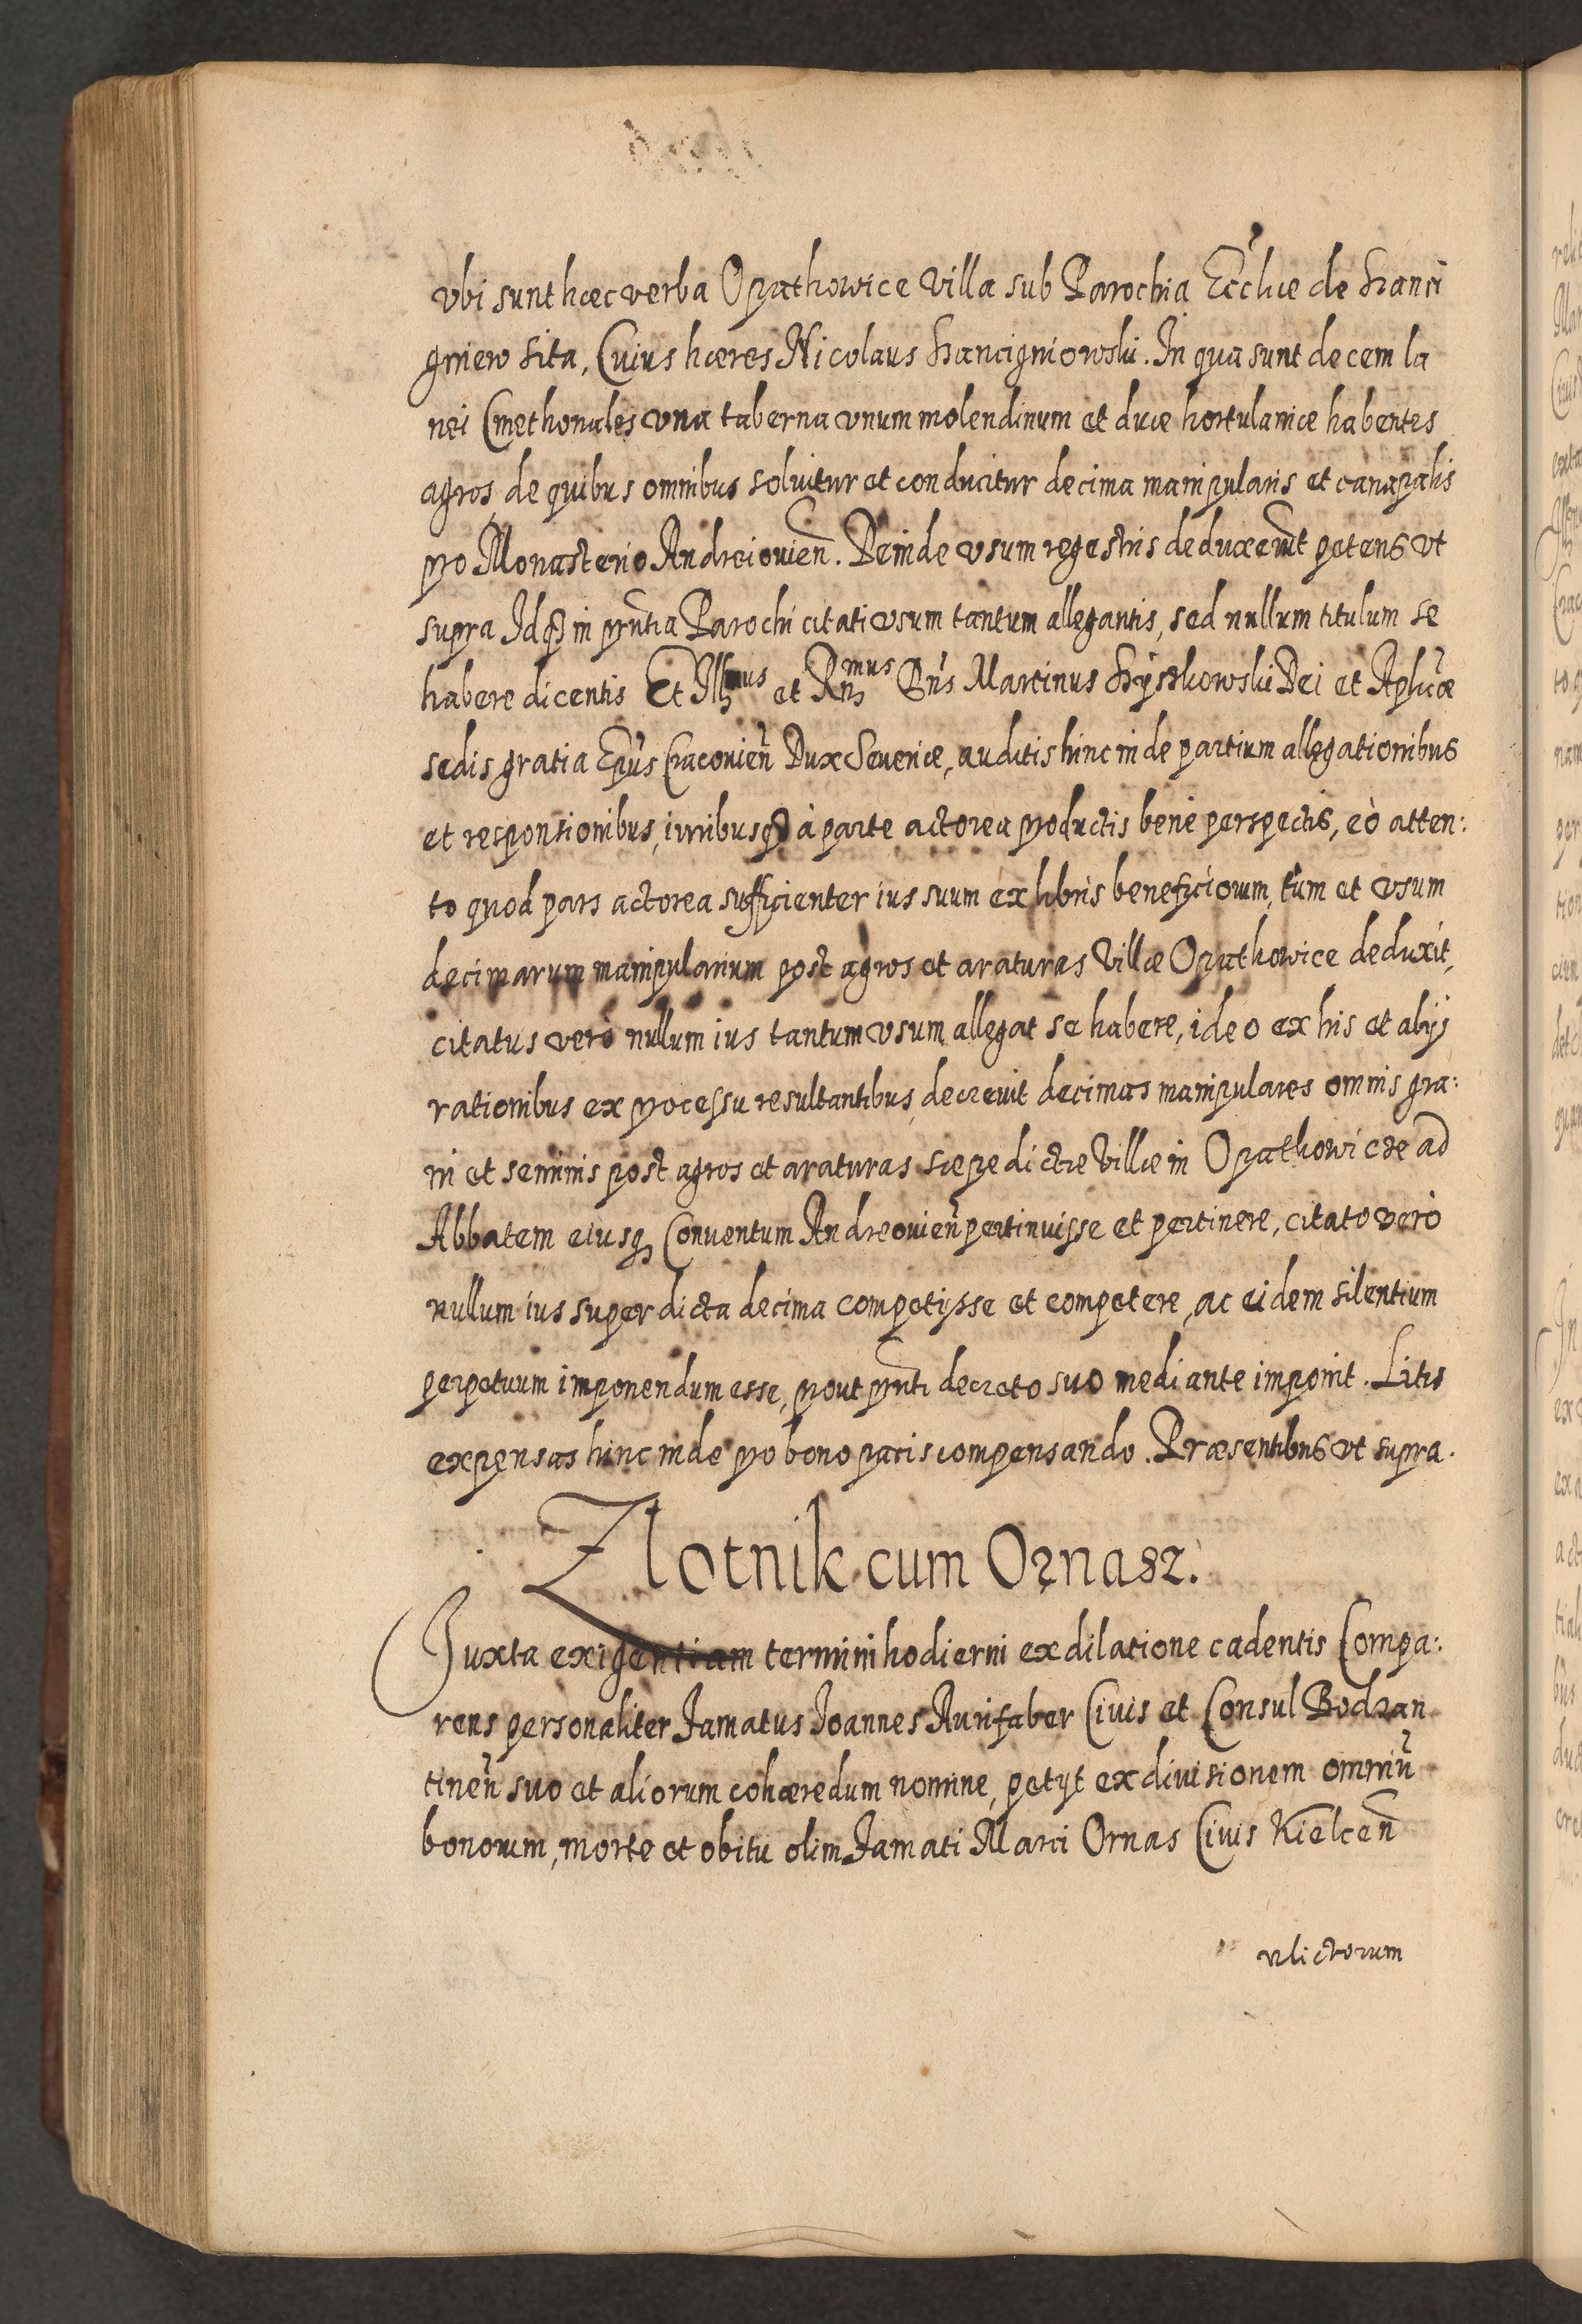 vbi sunt hæc verba Opathowice Villa sub Parochia Eccliæ de Hanci
gniew sita, Cuius hæres Nicolaus Hancigniowski. In qua sunt decem la
nei Cmethonales vna taberna vnum molendinum et duæ hortulaniæ habentes
agros, de quibus omnibus soluitur et conducitur decima manipularis et canapalis
pro Monasterio Andreiouien. Deinde vsum regestris deduxerunt petens vt
supra Idq3 in pntia Parochi citati vsum tantum allegantis, sed nullum titulum se
habere dicentis Et Illmus et Rndmus Dns Martinus Szyszkowski Dei et Aplicæ
sedis gratia Epus Cracouien Dux Seueriæ, auditis hinc inde partium allegationibus
et responsionibus, iuribusq3 à parte actorea productis benè perspectis, eò atten:
to quod pars actorea sufficienter ius suum ex libris beneficiorum, tùm et vsum
decimarum manipularium post agros et araturas Villæ Opathowice deduxit,
citatus verò nullum ius tantum vsum allegat se habere, ideo ex his et alijs
rationibus ex processu resultantibus, decreuit decimas manipulares omnis gra:
ni et seminis post agros et araturas sæpe dictæ Villæ in Opathowicze ad
Abbatem eiusq3 Conuentum Andreouien pertinuisse et pertinere, citato verò
nullum ius super dicta decima competijsse et competere, ac eidem silentium
perpetuum imponendum esse, prout pnti decreto suo mediante imponit. Litis
expensas hinc inde pro bono pacis compensando. Præsentibus vt supra.
Zlotnik cum Ornasz.
Juxta exigentiam termini hodierni ex dilatione cadentis Compa:
rens personaliter Famatus Joannes Aurifaber Ciuis et Consul Bodzan
tinen suo et aliorum cohæredum nomine, petijt exdiuisionem omniu
bonorum, morte et obitu olim Famati Marci Ornas Ciuis Kielcen
relictorum